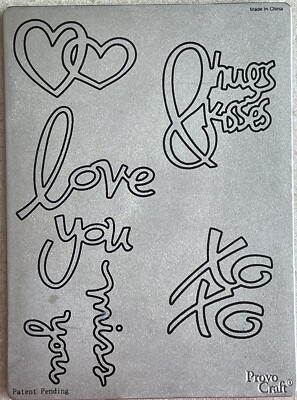 Made in China
hugs
& kisses
love
you
XO
XO
miss
you
Patent Pending
Provo
Craft®